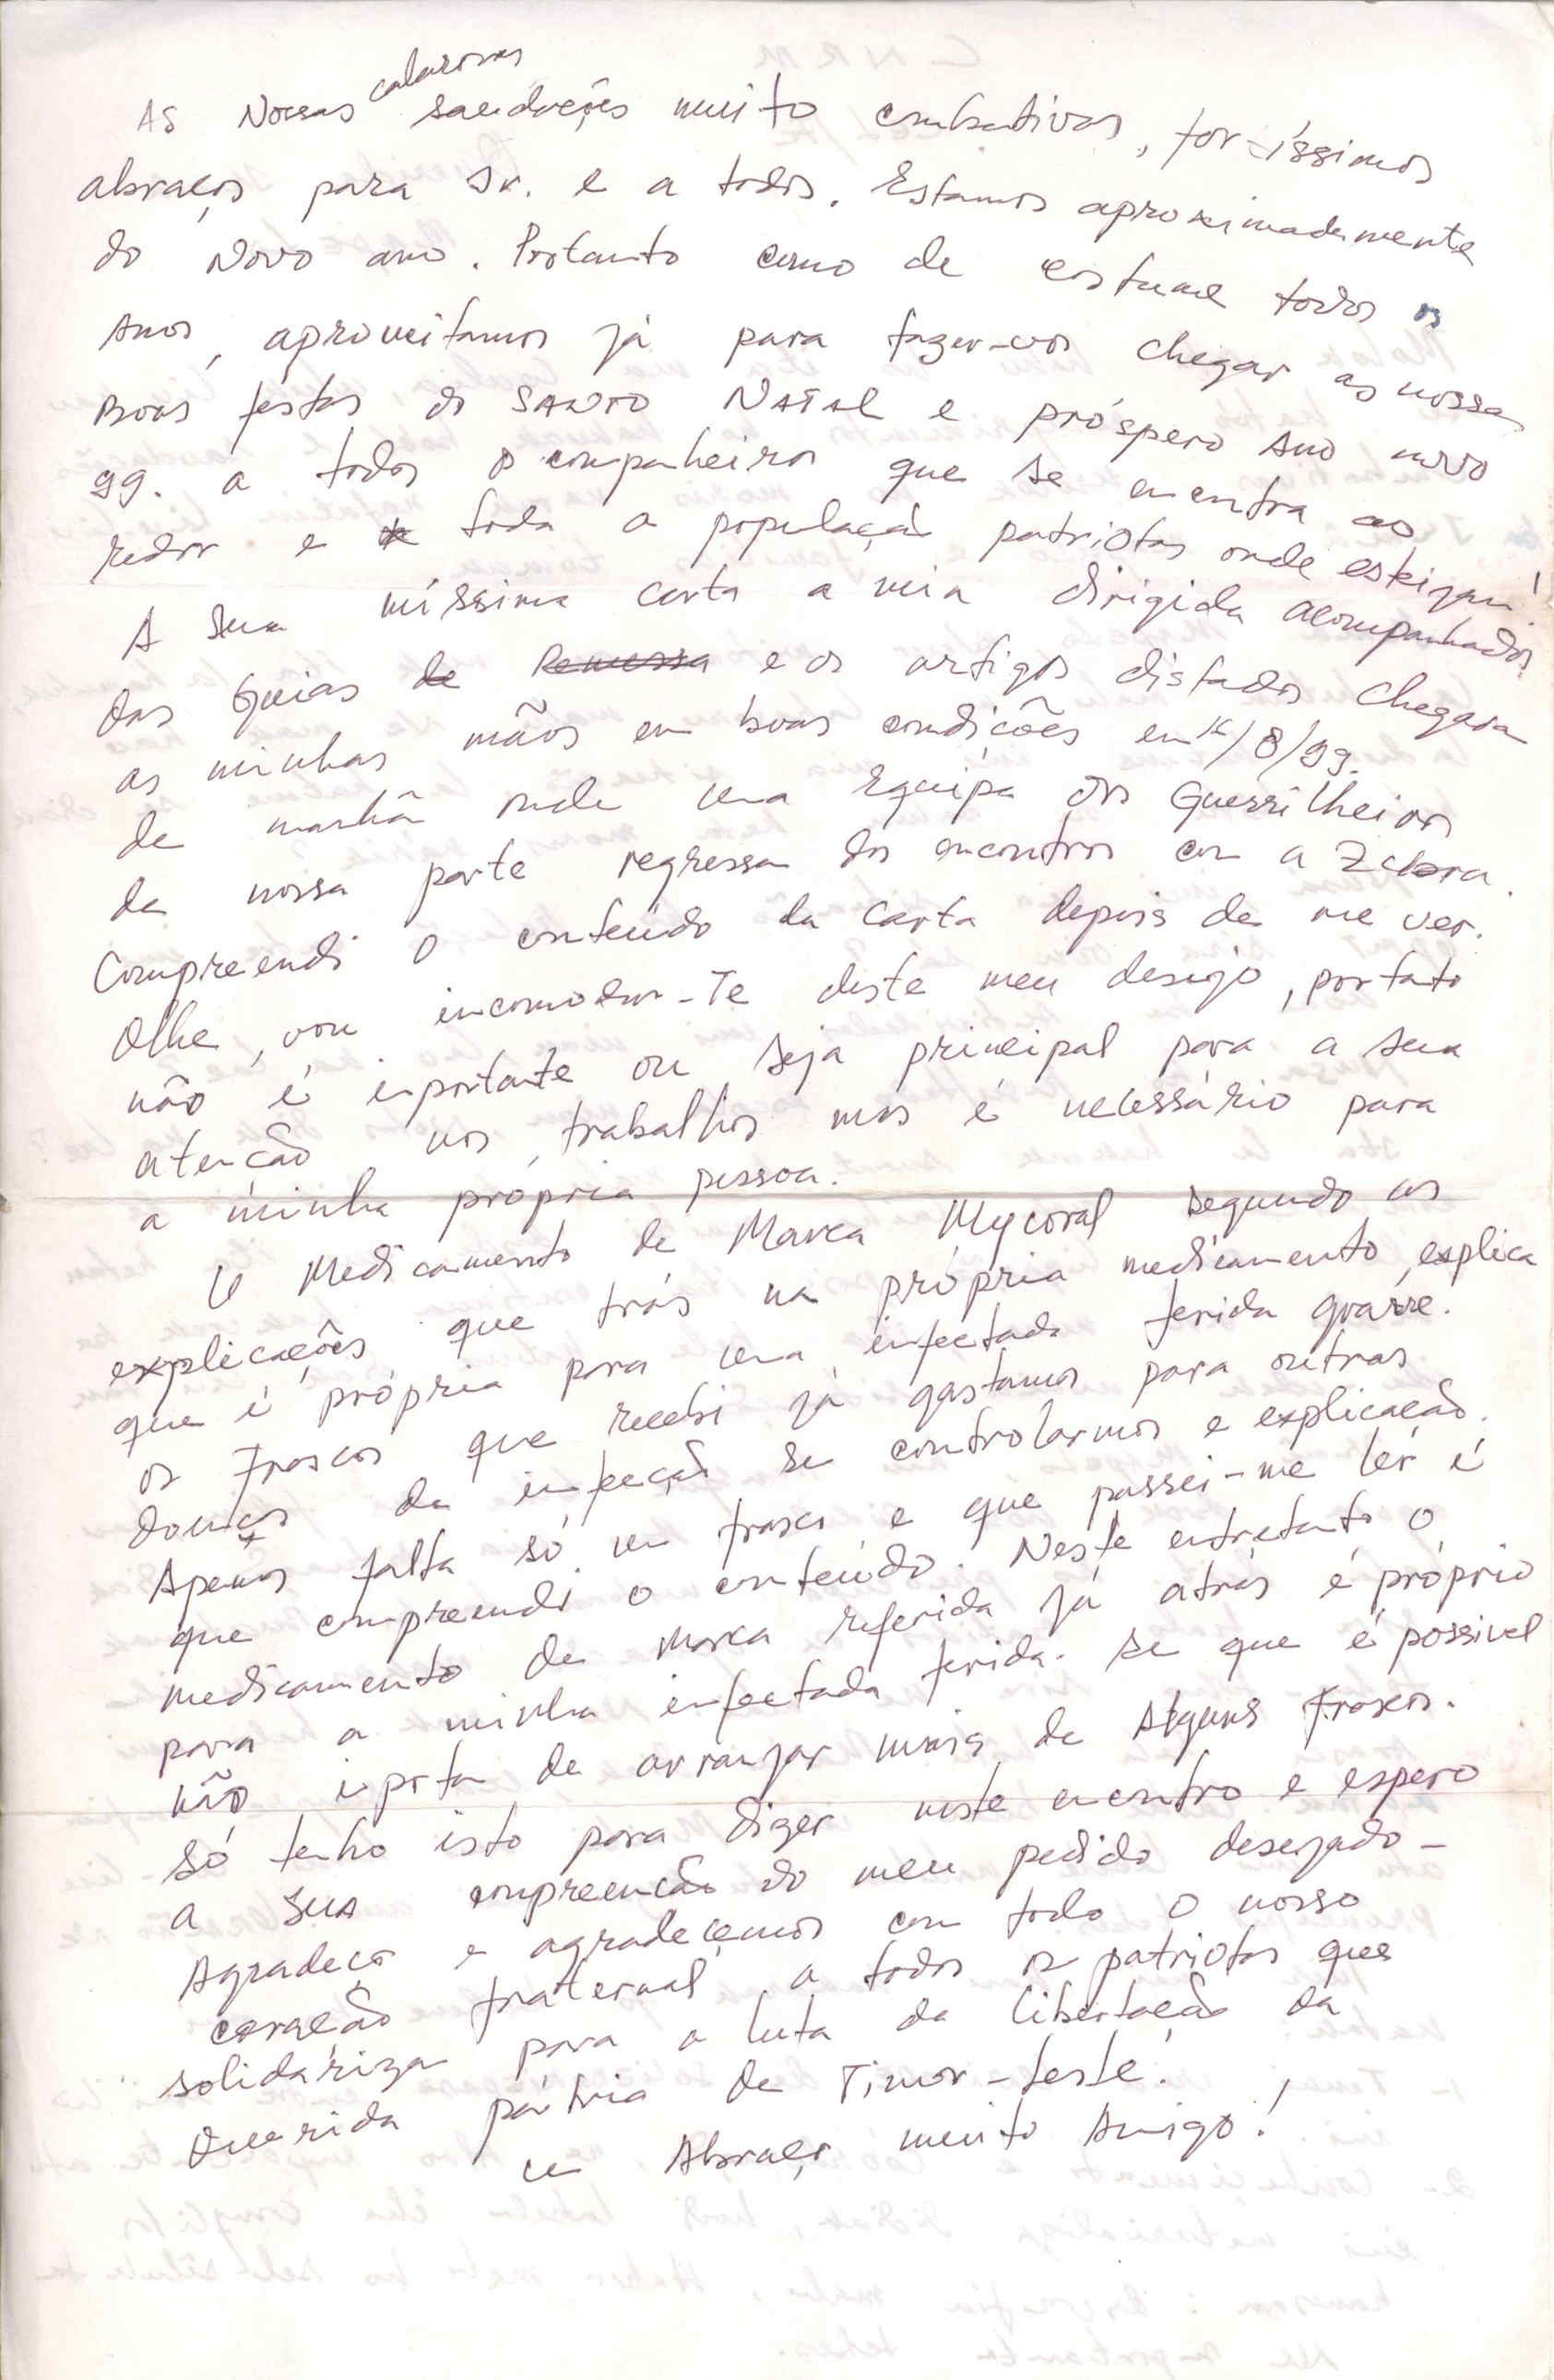 As Nossas calorosas saudações muito combativas, fortíssimos
abraços para Sr. e a todos. Estamos aproximadamente
do Novo ano. Portanto como de costume todos os
Anos, aproveitamos já para fazer-vos chegar as nossas
Boas festas do SANTO NATAL e próspero Ano novo
99. a todos o companheiros que se encontra ao
redor e toda a população patriotas onde estejam!
A Sua míssima carta a min dirigida acompanhados
das Guias de Remessa e os artigos distados chegaram
as minhas mãos em boas condições em /8/99.
de manhã onde uma Equipa dos Guerrilheiros
da nossa parte regressam dos encontros com a Zebra.
Compreendi o conteúdo da Carta depois de me ver.
Olhe, vou incomodar-Te deste meu desejo, portato
não é inportante ou seja principal para a sua
atenção nos trabalhos mas é necessário para
a minha própria pessoa.
O Medicamento de Marca Mycoral segundo as
explicações que trás na própria medicamento, explica
que é própria para uma infectada ferida grave.
os Frascos que recebi já gastamos para outras
doenças da infecção se controlarmos e explicação.
Apenas falta só um frasco e que passei-me lêr é
que compreendi o conteúdo. Neste entretanto o
medicamento de marca referida já atrás é próprio
para a minha infectada ferida. Se que é possivel
não inporta de arranjar mais de Alguns Frascos.
Só tenho isto para dizer neste encontro e espero
a SUA conpreenção do meu pedido desejado-
Agradeço e agradecemos com todo o nosso
coração fraternal a todos os patriotas que
solidáriza para a luta da libertação da
Querida pátria de Timor-Leste.
um Abraço muito Amigo!